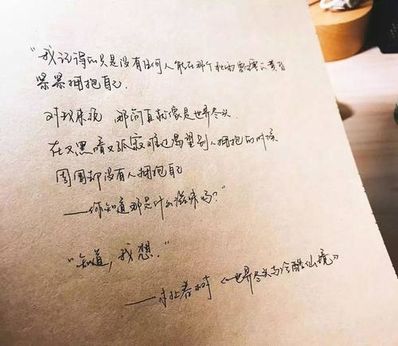 “我记得的只是没有任何人能在那个秋雨霏霏的黄昏
紧紧拥抱自己.
对我来说 那简直就像是世界尽头
在又黑暗又孤寂难过渴望别人拥抱的时候
周围却没有人拥抱自己
——你知道那是什么滋味吗?”
“知道,我想.”
——村上春树《世界尽头与冷酷仙境》